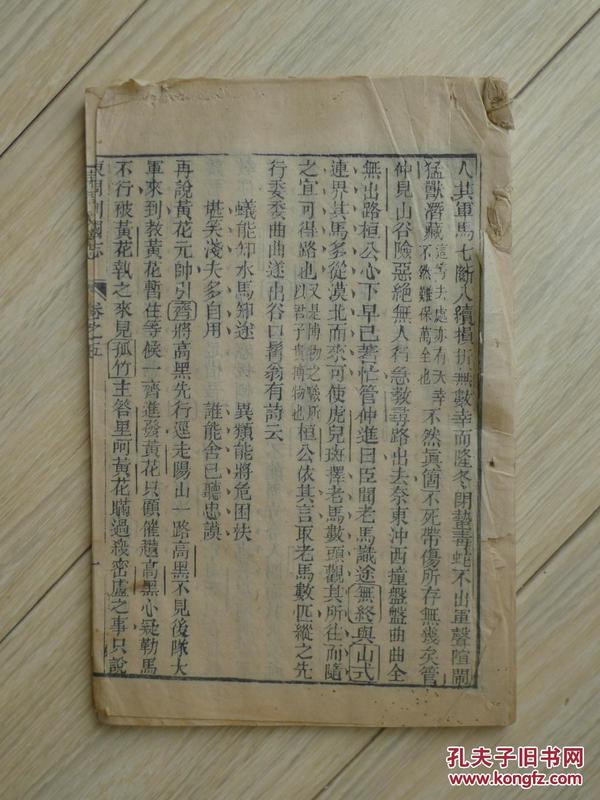 人其軍馬七斷八續檀折無數幸而隆冬閉蟄毒蛇不出軍聲喧鬧
猛獸潛藏這等去處亦有天幸不然難保萬全也不然眞箇不死帶傷所存無幾矣管
仲見山谷險惡絕無人行急教尋路出去奈東沖西撞盤盤曲曲全
無出路桓公心下早已著忙管仲進曰臣聞老馬識途無終與山戎
連界其馬多從漠北而來可使虎兒斑擇老馬數頭觀其所往而隨
之宜可得路也又是博物之験所以君子貴博物也桓公依其言取老馬數匹縱之先
行委委曲曲遂出谷口髯翁有詩云
蟻能知水馬知途 異類能將危困扶
堪笑淺夫多自用 誰能舍己聽忠謨
再說黃花元帥引齊將高黑先行逕走陽山一路高黑不見後隊大
軍來到教黃花暫住等候一齊進發黃花只顧催趲高黑心疑勒馬
不行被黃花執之來見孤竹主答里呵黃花瞞過殺密盧之事只說
東周列國志 卷之五
孔夫子旧书网
www.kongfz.com